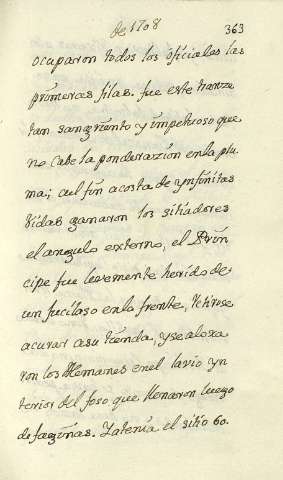 de 1708
363
ocuparon todos los oficiales las
primeras filas. fue este tranze
tan sangriento y impetuoso que
no cabe la ponderazion en la plu
ma; al fin a costa de ynfinitas
vidas ganaron los sitiadores
el angulo externo, el Prin
cipe fue levemente herido de
un fucilaso en la frente, retirose
a curar a su tienda, y se aloxa
ron los Alemanes en el lavio yn
terior del foso que llenaron luego
de faginas. Ya tenia el sitio 60.